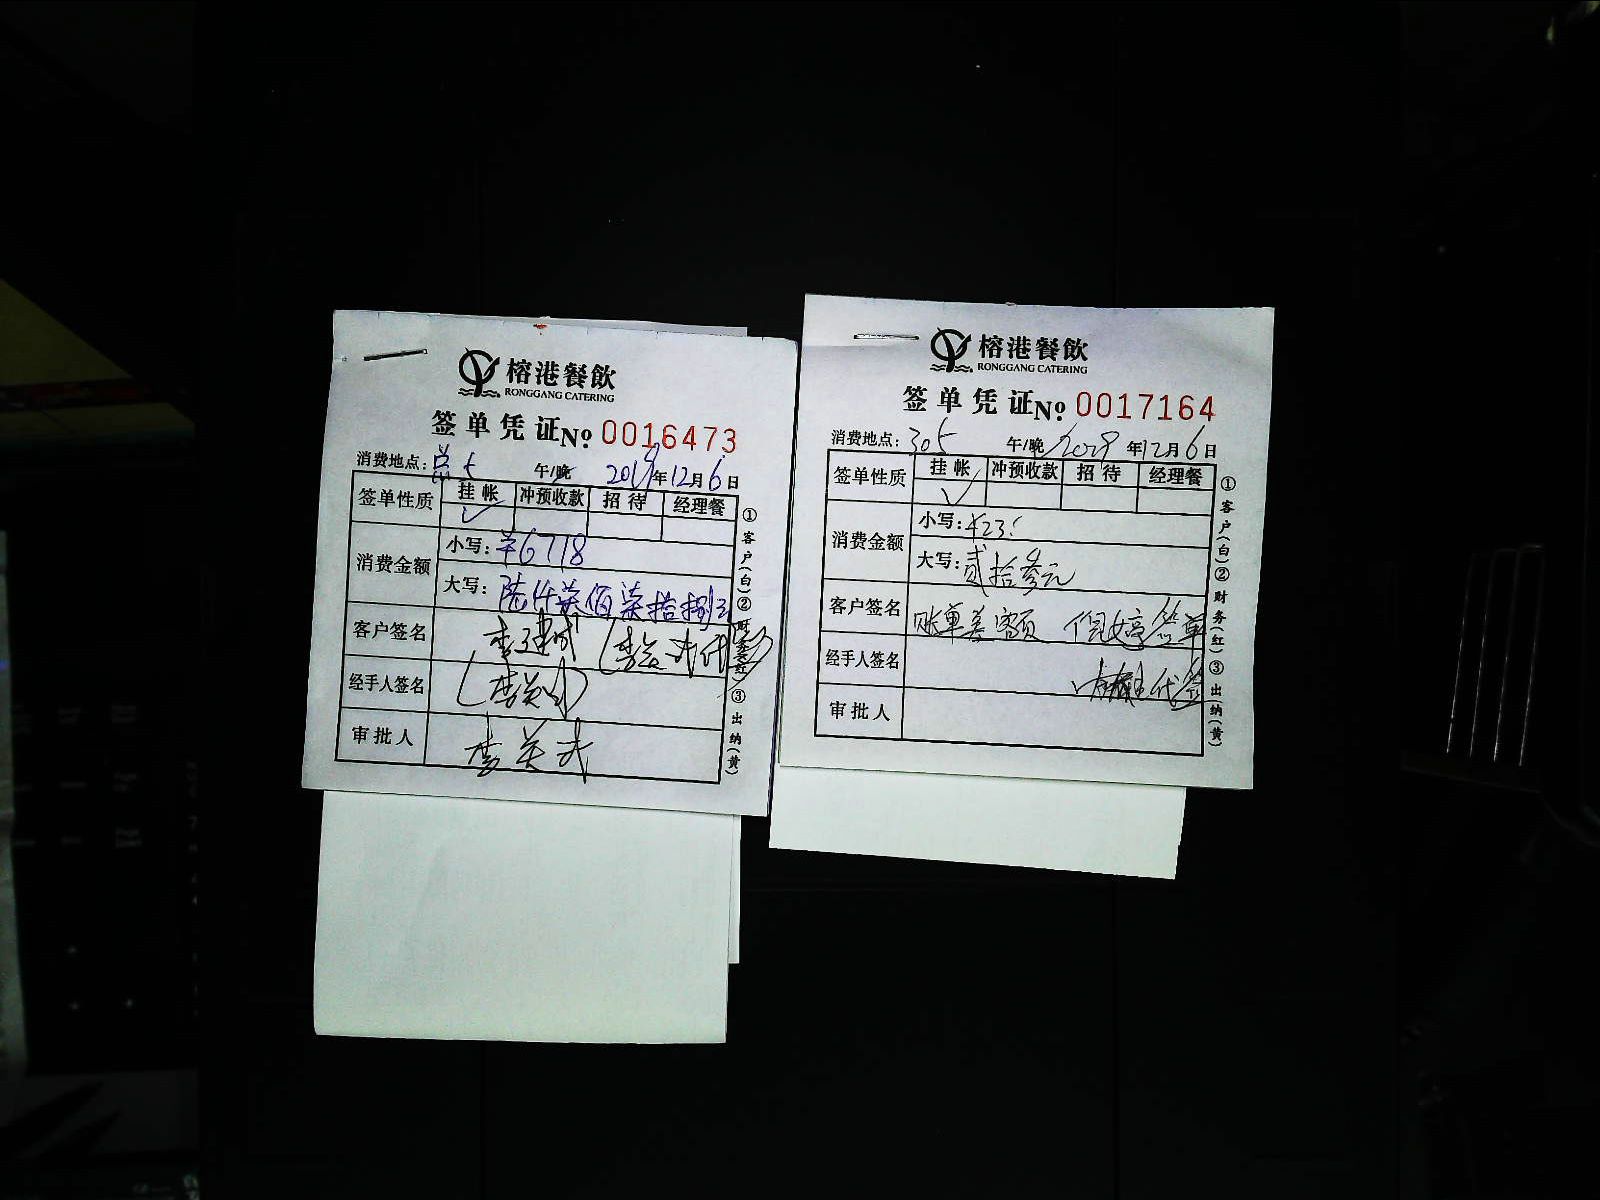 榕港餐飲
RONGGANG CATERING
签单凭证 No 0016473
消费地点: 午/晚 2019年12月6日
签单性质 挂帐 冲预收款 招待 经理餐
✓
消费金额 小写: ¥6718
大写: 陆仟柒佰柒拾捌元
客户签名 李建成
经手人签名
审批人 李关武
①客户(白)②财务(红)③出纳(黄)
榕港餐飲
RONGGANG CATERING
签单凭证 No 0017164
消费地点: 305 午/晚 年12月6日
签单性质 挂帐 冲预收款 招待 经理餐
✓
消费金额 小写: ¥23
大写: 贰拾叁元
客户签名 账单差额 倪婷签单
经手人签名 代签
审批人
①客户(白)②财务(红)③出纳(黄)